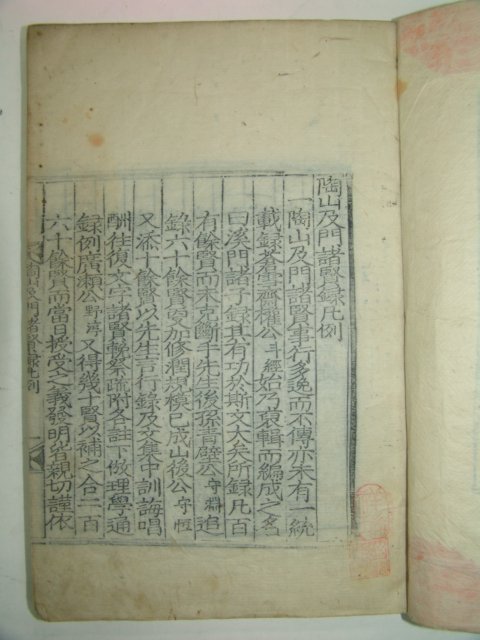 陶山及門諸賢錄凡例
一陶山及門諸賢事行多逸而不傳亦未有一統
載錄蒼雪齋權公斗經始乃裒輯而編成之名
曰溪門諸子錄其有功於斯文大矣所錄凡百
有餘賢而未克斷手先生後孫靑壁公守淵追
錄六十餘賢妥加修潤規模已成山後公守恒
又添十餘賢以先生言行錄及文集中訓誨唱
酬往復文字諸賢輓祭疏附各註下倣理學通
錄例廣瀬公野淳又得幾十賢以補之合二百
六十餘賢而當日授受之義發明省親切謹依
陶山及門諸賢錄凡例 一